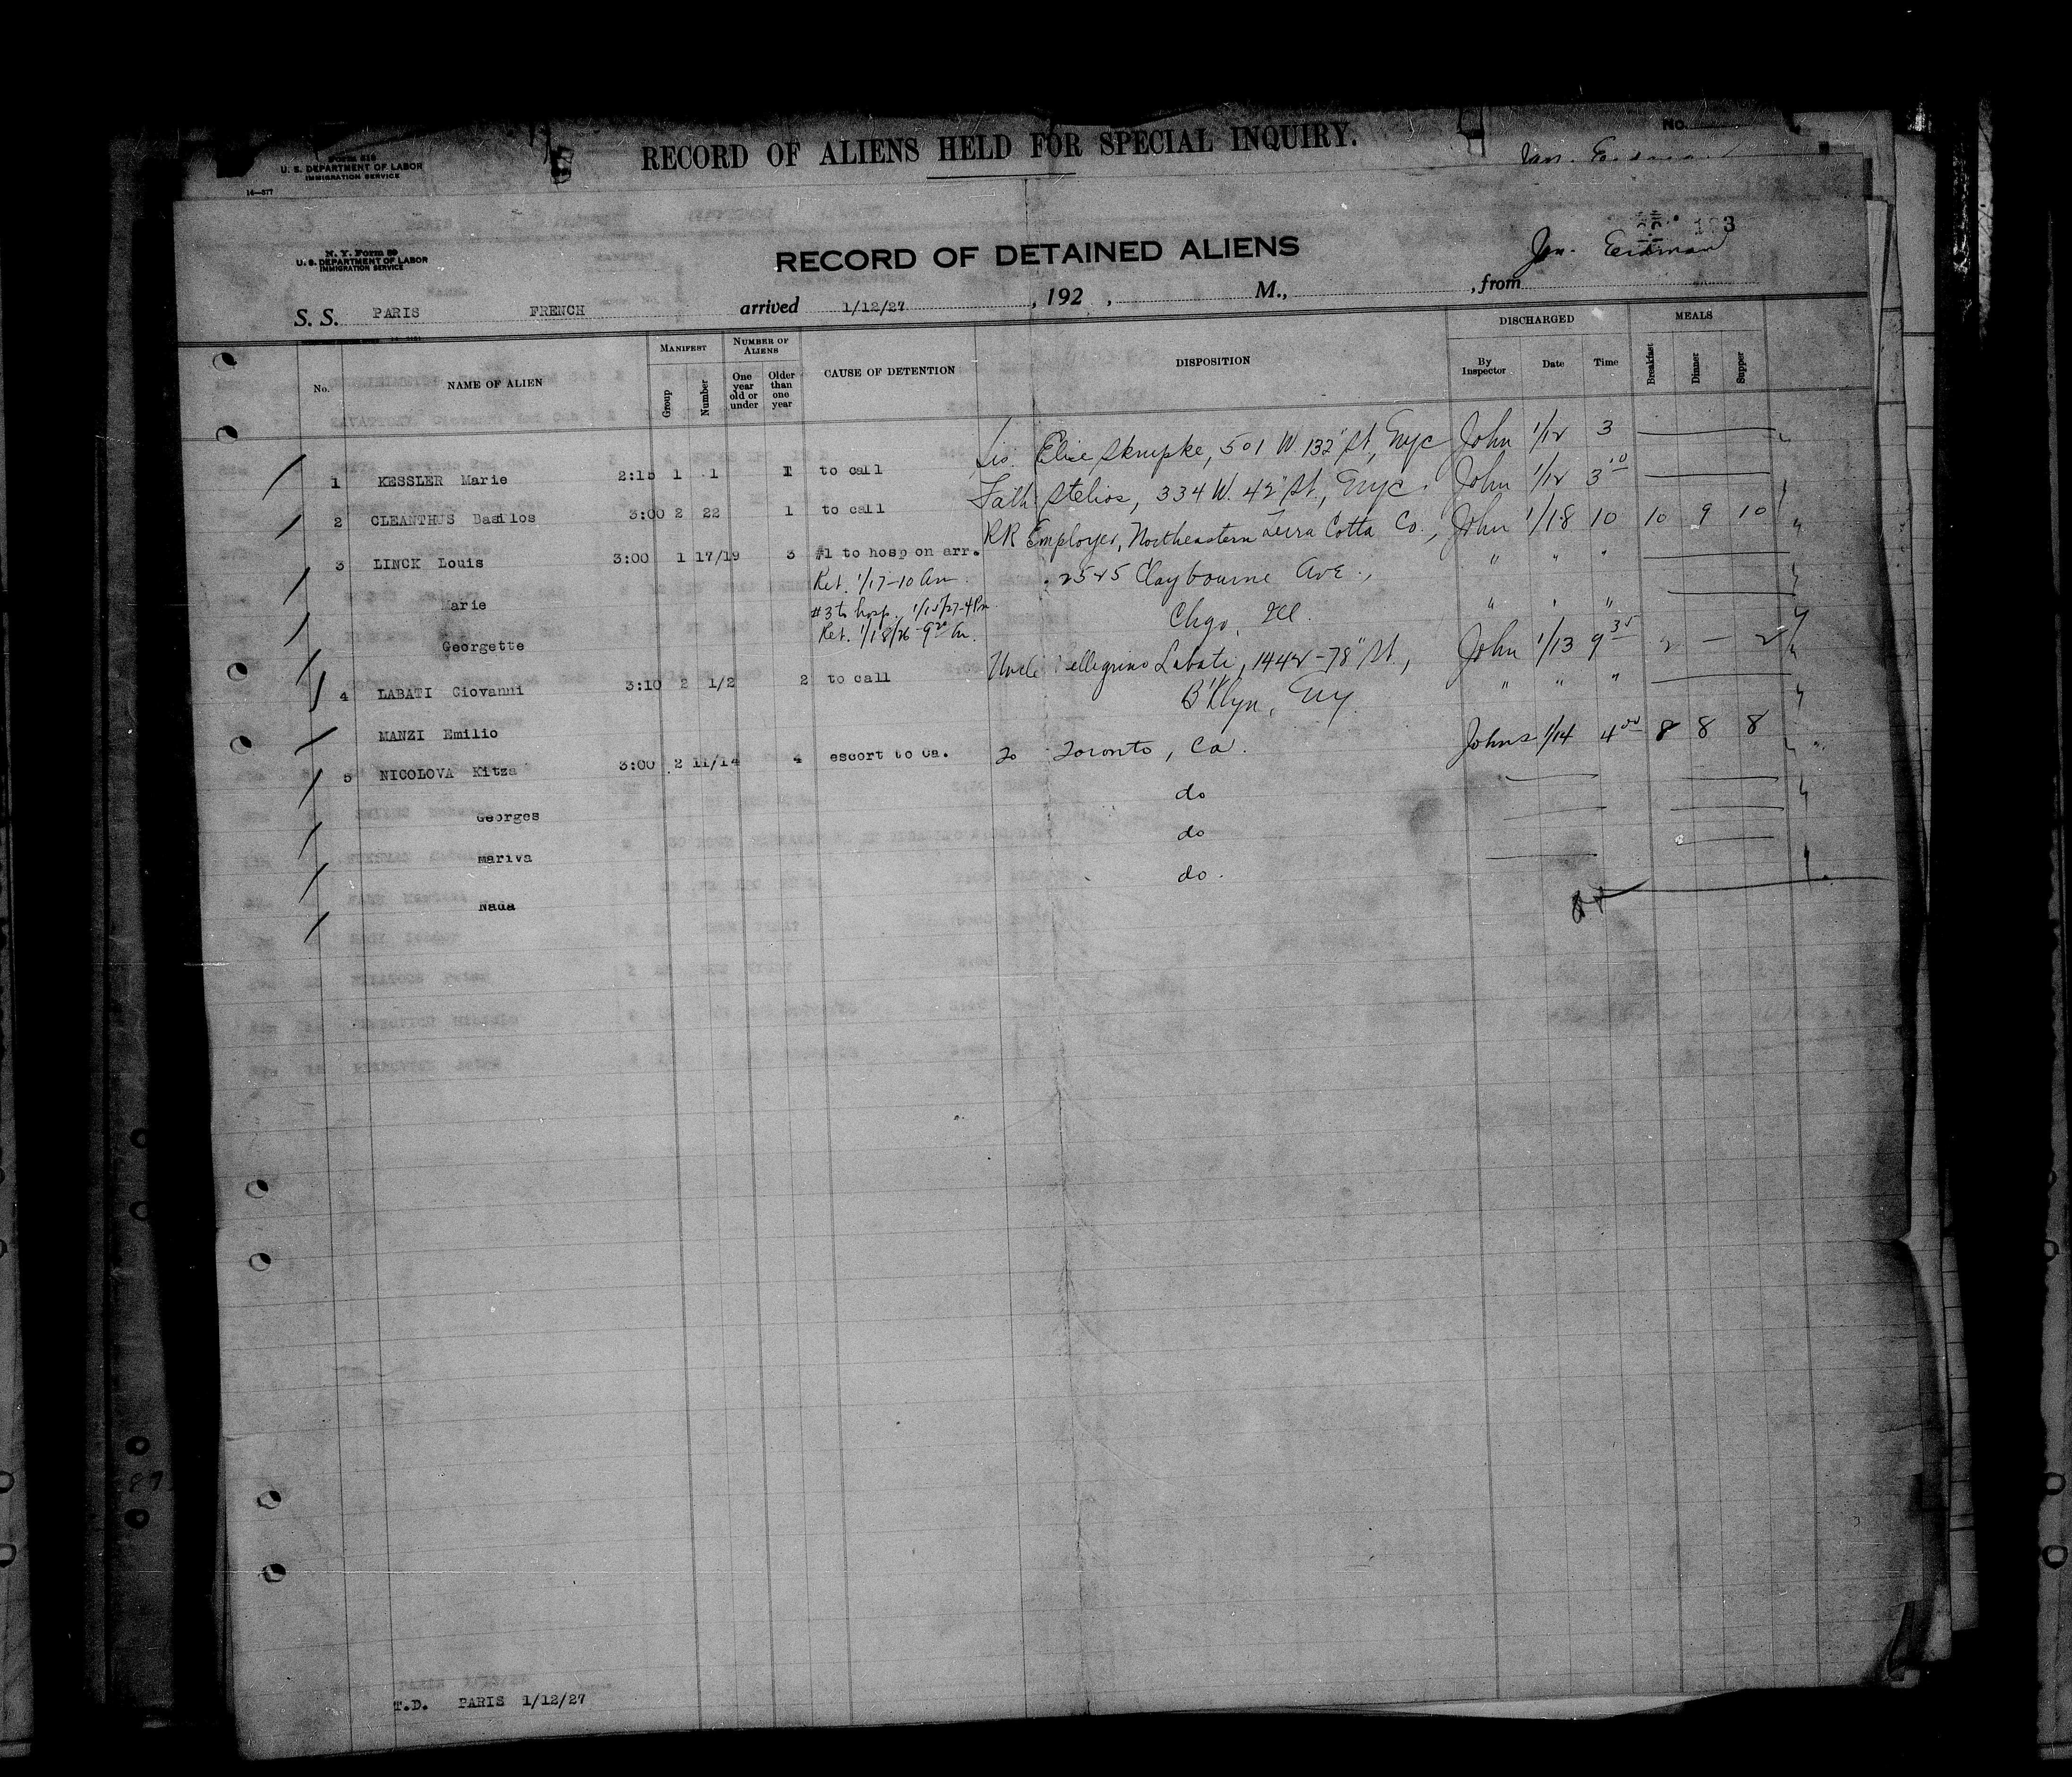 Form 616
U. S. DEPARTMENT OF LABOR
IMMIGRATION SERVICE
14—577
RECORD OF ALIENS HELD FOR SPECIAL INQUIRY.
No.
N. Y. Form 89
U. S. DEPARTMENT OF LABOR
IMMIGRATION SERVICE
RECORD OF DETAINED ALIENS
Jan. Eerdman
S. S. PARIS FRENCH arrived 1/12/27, 192 , M., , from
No. NAME OF ALIEN MANIFEST Group Number NUMBER OF ALIENS One year old or under Older than one year CAUSE OF DETENTION DISPOSITION DISCHARGED By Inspector Date Time MEALS Breakfast Dinner Supper
1 KESSLER Marie 2:15 1 1 1 to call Sis. Elise Skrupke, 501 W. 132" St, Nyc John 1/12 3
2 CLEANTHUS Basilos 3:00 2 22 1 to call Fath. Stelios, 334 W. 42" St., Nyc. John 1/12 3 10
3 LINCK Louis 3:00 1 17/19 3 #1 to hosp on arr. RR Employer, Northeastern Terra Cotta Co., John 1/18 10 10 9 10
Ret. 1/17-10 Am. 2525 Claybourne Ave., " " "
Marie #3 to hosp. 1/15/27-4 Pm. Chgo, Ill. " " "
Georgette Ret. 1/18/26 - 9 20 Am.
4 LABATI Giovanni 3:10 2 1/2 2 to call Uncle Pellegrino Labati, 1442-78" St., John 1/13 9 35 2 — 2
MANZI Emilio B'klyn, Ny. " " "
5 NICOLOVA Kitza 3:00 2 11/14 4 escort to Ca. To Toronto, Ca. Johns 1/14 4 00 8 8 8
Georges do
Mariva do
Nada do.
T.D. PARIS 1/12/27